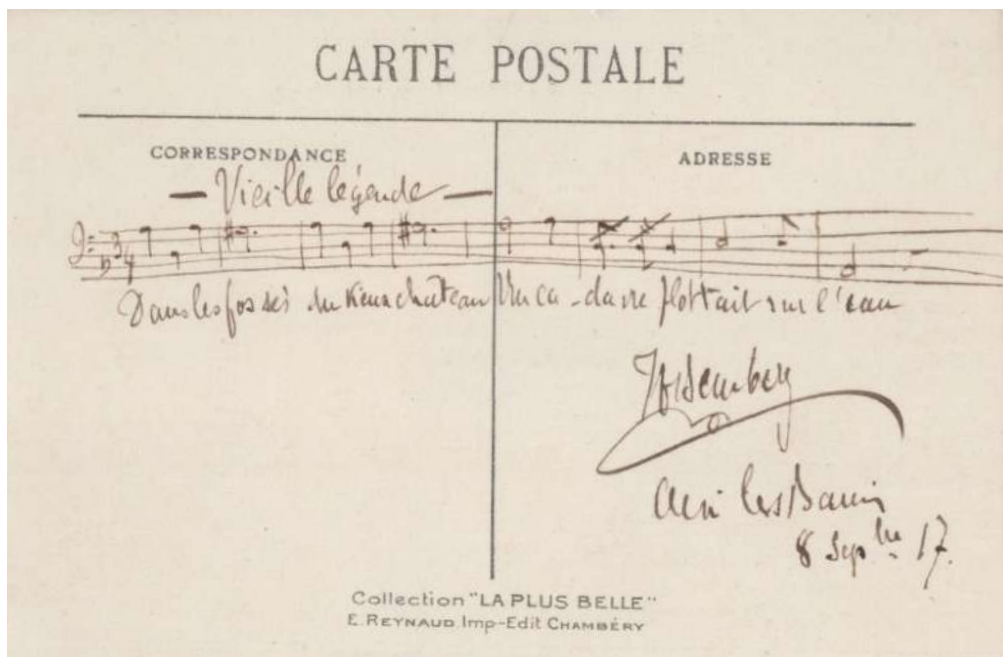 CARTE POSTALE
CORRESPONDANCE
ADRESSE
— Vieille légende —
3/4
Dans les fossés du vieux chateau Un ca-davre flottait sur l'eau
Aix les Bains
8 Sepbre 17.
Collection "LA PLUS BELLE"
E. REYNAUD, Imp-Edit CHAMBÉRY